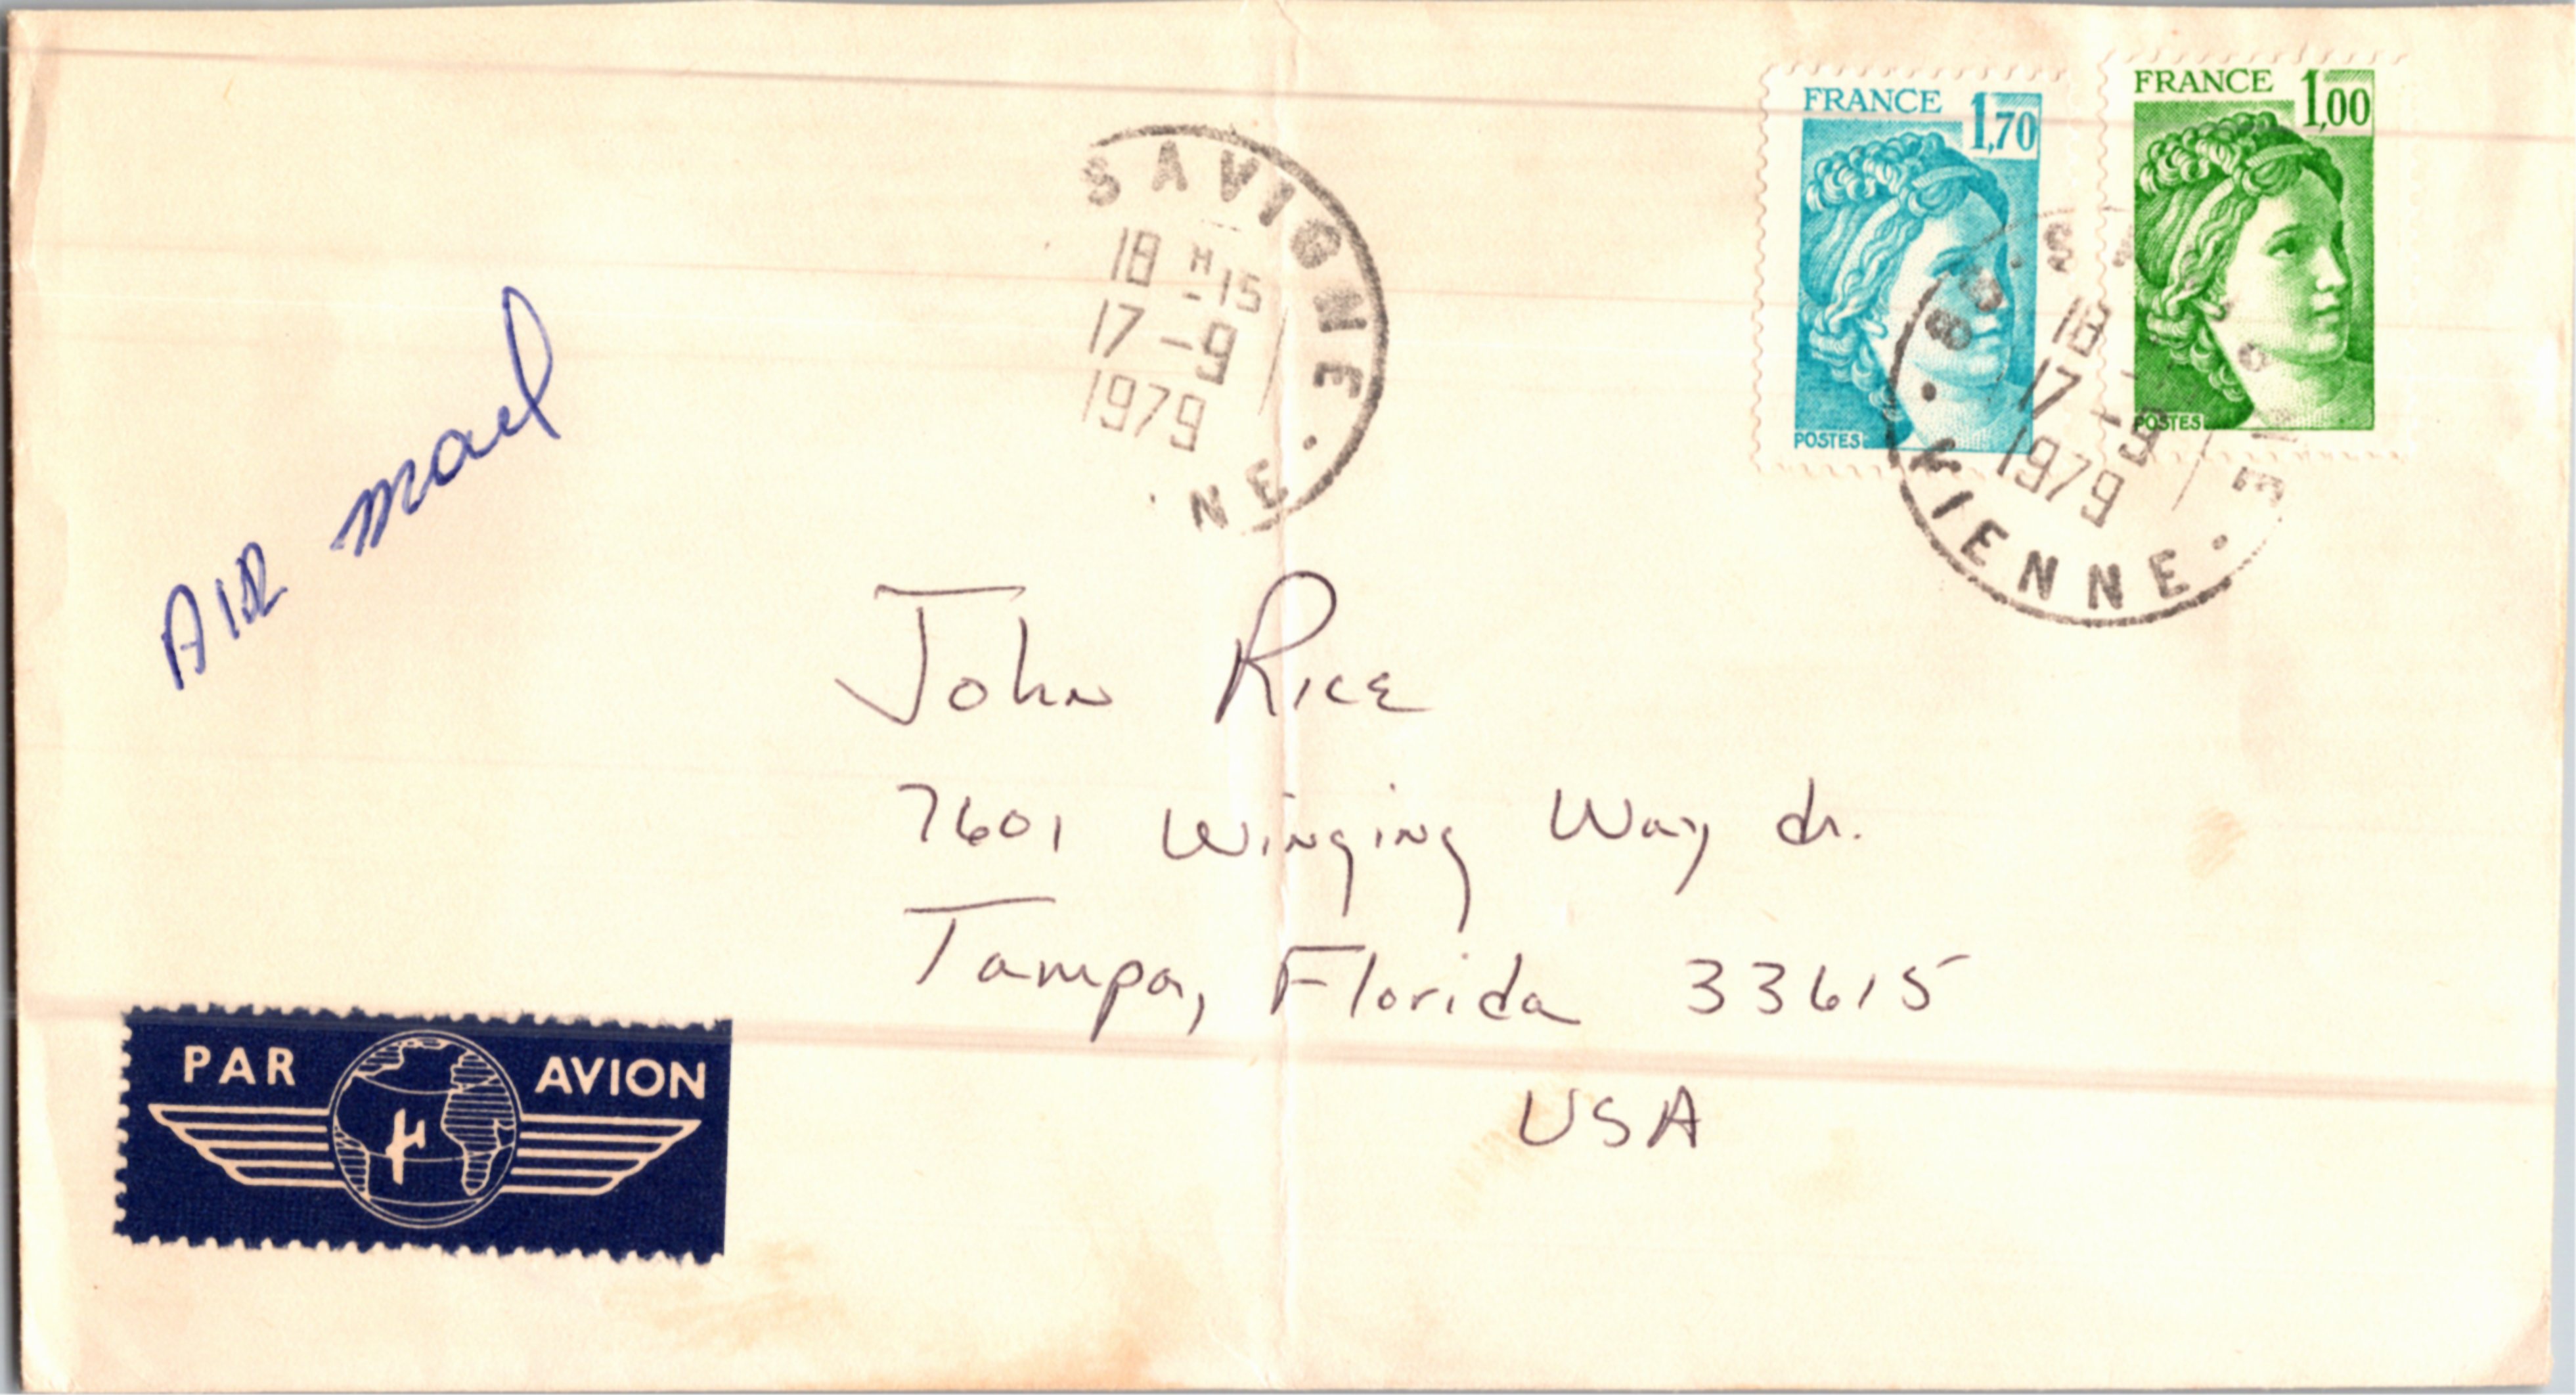 FRANCE 1,70
POSTES
FRANCE 1,00
POSTES
SAVIGNE
18 H 15
17 -9
1979
NE
18
17 -9
1979
VIENNE
AIR mail
John Rice
7601 Winging Way dr.
Tampa, Florida 33615
USA
PAR AVION